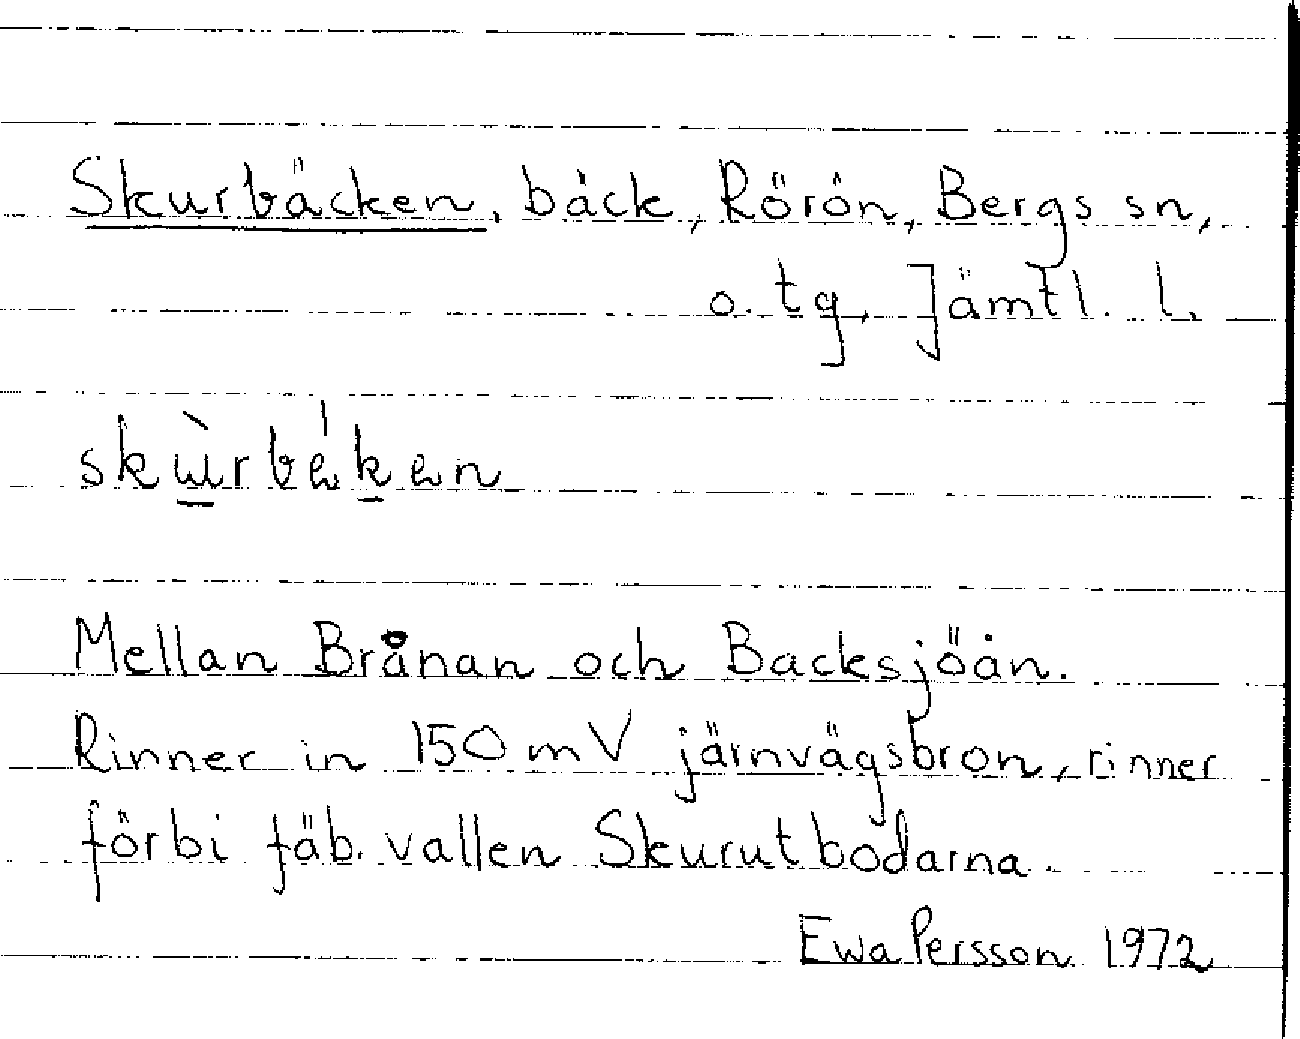 Skurbäcken, bäck, Rörön, Bergs sn,
o. tg, Jämtl. l.
skùrbéken
Mellan Brånan och Backsjöån.
Rinner in 150 m V järnvägsbron, rinner
förbi fäb. vallen Skurutbodarna.
Ewa Persson 1972